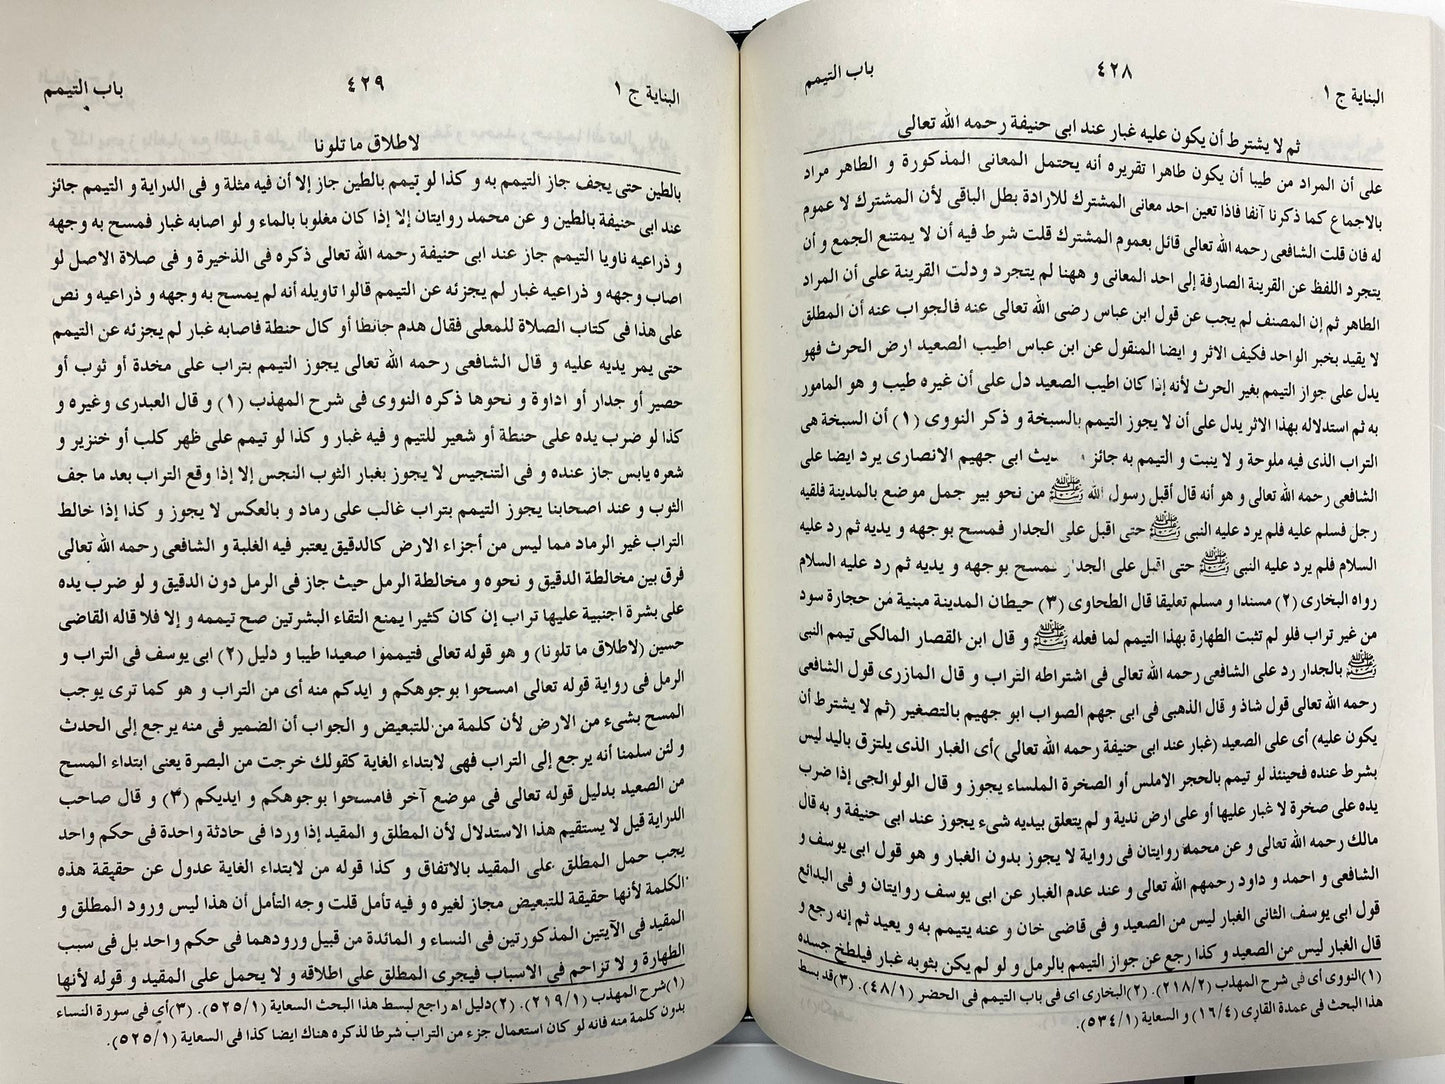 البناية ج ١ ٤٢٨ باب التيمم
ثم لا يشترط أن يكون عليه غبار عند ابى حنيفة رحمه الله تعالى
على أن المراد من طيبا أن يكون طاهرا تقريره أنه يحتمل المعانى المذكورة و الطاهر مراد
بالاجماع كما ذكرنا آنفا فاذا تعين احد معانى المشترك للارادة بطل الباقى لأن المشترك لا عموم
له فان قلت الشافعى رحمه الله تعالى قائل بعموم المشترك قلت شرط فيه أن لا يمتنع الجمع و أن
يتجرد اللفظ عن القرينة الصارفة إلى احد المعانى و ههنا لم يتجرد ودلت القرينة على أن المراد
الطاهر ثم إن المصنف لم يجب عن قول ابن عباس رضى الله تعالى عنه فالجواب عنه أن المطلق
لا يقيد بخبر الواحد فكيف الاثر و ايضا المنقول عن ابن عباس اطيب الصعيد ارض الحرث فهو
يدل على جواز التيمم بغير الحرث لأنه إذا كان اطيب الصعيد دل على أن غيره طيب و هو المامور
به ثم استدلاله بهذا الاثر يدل على أن لا يجوز التيمم بالسبخة و ذكر النووى (١) أن السبخة هى
التراب الذى فيه ملوحة و لا ينبت و التيمم به جائز ديث ابى جهيم الانصارى يرد ايضا على
الشافعى رحمه الله تعالى و هو أنه قال أقبل رسول الله ﷺ من نحو بير جمل موضع بالمدينة فلقيه
رجل فسلم عليه فلم يرد عليه النبى ﷺ حتى اقبل على الجدار فمسح بوجهه و يديه ثم رد عليه
السلام فلم يرد عليه النبى ﷺ حتى اقبل على الجدار فمسح بوجهه و يديه ثم رد عليه السلام
رواه البخارى (٢) مسندا و مسلم تعليقا قال الطحاوى (٣) حيطان المدينة مبنية من حجارة سود
من غير تراب فلو لم تثبت الطهارة بهذا التيمم لما فعله ﷺ و قال ابن القصار المالكى تيمم النبى
ﷺ بالجدار رد على الشافعى رحمه الله تعالى فى اشتراطه التراب و قال المازرى قول الشافعى
رحمه الله تعالى قول شاذ و قال الذهبى فى ابى جهم الصواب ابو جهيم بالتصغير (ثم لا يشترط أن
يكون عليه) أى على الصعيد (غبار عند ابى حنيفة رحمه الله تعالى )أى الغبار الذى يلتزق باليد ليس
بشرط عنده فحينئذ لو تيمم بالحجر الاملس أو الصخرة الملساء يجوز و قال الولوالجى إذا ضرب
يده على صخرة لا غبار عليها أو على ارض ندية و لم يتعلق بيديه شىء يجوز عند ابى حنيفة و به قال
مالك رحمه الله تعالى و عن محمد روايتان فى رواية لا يجوز بدون الغبار و هو قول ابى يوسف و
الشافعى و احمد و داود رحمهم الله تعالى و عند عدم الغبار عن ابى يوسف روايتان و فى البدائع
قول ابى يوسف الثانى الغبار ليس من الصعيد و فى قاضى خان و عنه يتيمم به و يعيد ثم إنه رجع و
قال الغبار ليس من الصعيد و كذا رجع عن جواز التيمم بالرمل و لو لم يكن بثوبه غبار فيلطخ جسده
(١)النووى أى فى شرح المهذب (٢١٨/٢). (٢)البخارى اى فى باب التيمم فى الحضر (٤٨/١). (٣)قد بسط
هذا البحث فى عمدة القارى (١٦/٤) و السعاية (٥٣٤/١).
البناية ج ١ ٤٢٩ باب التيمم
لاطلاق ما تلونا
بالطين حتى يجف جاز التيمم به و كذا لو تيمم بالطين جاز إلا أن فيه مثلة و فى الدراية و التيمم جائز
عند ابى حنيفة بالطين و عن محمد روايتان إلا إذا كان مغلوبا بالماء و لو اصابه غبار فمسح به وجهه
و ذراعيه ناويا التيمم جاز عند ابى حنيفة رحمه الله تعالى ذكره فى الذخيرة و فى صلاة الاصل لو
اصاب وجهه و ذراعيه غبار لم يجزئه عن التيمم قالوا تاويله أنه لم يمسح به وجهه و ذراعيه و نص
على هذا فى كتاب الصلاة للمعلى فقال هدم حانطا أو كال حنطة فاصابه غبار لم يجزئه عن التيمم
حتى يمر يديه عليه و قال الشافعى رحمه الله تعالى يجوز التيمم بتراب على مخدة أو ثوب أو
حصير أو جدار أو اداوة و نحوها ذكره النووى فى شرح المهذب (١) و قال العبدرى وغيره و
كذا لو ضرب يده على حنطة أو شعير للتيم و فيه غبار و كذا لو تيمم على ظهر كلب أو خنزير و
شعره يابس جاز عنده و فى التنجيس لا يجوز بغبار الثوب النجس إلا إذا وقع التراب بعد ما جف
الثوب و عند اصحابنا يجوز التيمم بتراب غالب على رماد و بالعكس لا يجوز و كذا إذا خالط
التراب غير الرماد مما ليس من أجزاء الارض كالدقيق يعتبر فيه الغلبة و الشافعى رحمه الله تعالى
فرق بين مخالطة الدقيق و نحوه و مخالطة الرمل حيث جاز فى الرمل دون الدقيق و لو ضرب يده
على بشرة اجنبية عليها تراب إن كان كثيرا يمنع التقاء البشرتين صح تيممه و إلا فلا قاله القاضى
حسين (لاطلاق ما تلونا) و هو قوله تعالى فتيمموا صعيدا طيبا و دليل (٢) ابى يوسف فى التراب و
الرمل فى رواية قوله تعالى امسحوا بوجوهكم و ايدكم منه أى من التراب و هو كما ترى يوجب
المسح بشىء من الارض لأن كلمة من للتبعيض و الجواب أن الضمير فى منه يرجع إلى الحدث
و لئن سلمنا أنه يرجع إلى التراب فهى لابتداء الغاية كقولك خرجت من البصرة يعنى ابتداء المسح
من الصعيد بدليل قوله تعالى فى موضع آخر فامسحوا بوجوهكم و ايديكم (٣) و قال صاحب
الدراية قيل لا يستقيم هذا الاستدلال لأن المطلق و المقيد إذا وردا فى حادثة واحدة فى حكم واحد
يجب حمل المطلق على المقيد بالاتفاق و كذا قوله من لابتداء الغاية عدول عن حقيقة هذه
الكلمة لأنها حقيقة للتبعيض مجاز لغيره و فيه تأمل قلت وجه التأمل أن هذا ليس ورود المطلق و
المقيد فى الآيتين المذكورتين فى النساء و المائدة من قبيل ورودهما فى حكم واحد بل فى سبب
الطهارة و لا تزاحم فى الاسباب فيجرى المطلق على اطلاقه و لا يحمل على المقيد و قوله لأنها
(١)شرح المهذب (٢١٩/١). (٢)دليل اه راجع لبسط هذا البحث السعاية (٥٢٥/١). (٣)أي فى سورة النساء
بدون كلمة منه فانه لو كان استعمال جزء من التراب شرطا لذكره هناك ايضا كذا فى السعاية (٥٢٥/١).